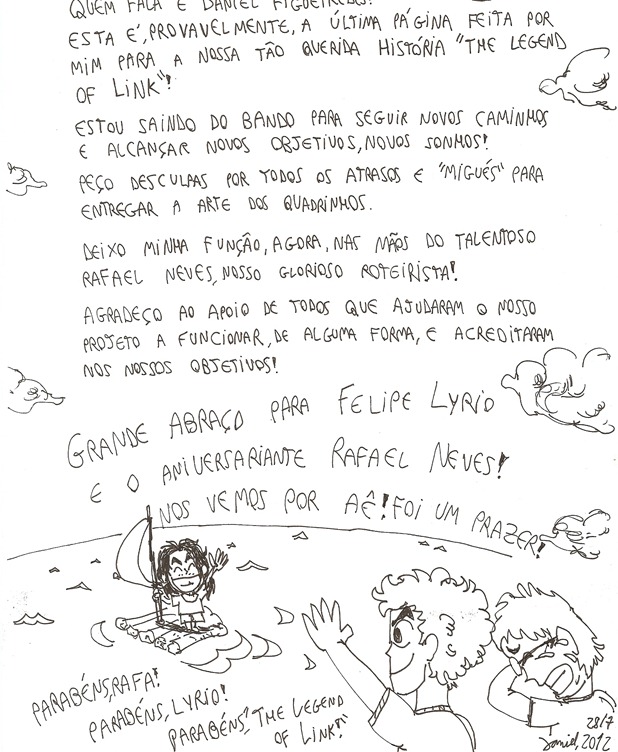 QUEM FALA É DANIEL FIGUEIREDO!
ESTA É, PROVAVELMENTE, A ÚLTIMA PÁGINA FEITA POR
MIM PARA A NOSSA TÃO QUERIDA HISTÓRIA "THE LEGEND
OF LINK"!
ESTOU SAINDO DO BANDO PARA SEGUIR NOVOS CAMINHOS
E ALCANÇAR NOVOS OBJETIVOS, NOVOS SONHOS!
PEÇO DESCULPAS POR TODOS OS ATRASOS E "MIGUÉS" PARA
ENTREGAR A ARTE DOS QUADRINHOS.
DEIXO MINHA FUNÇÃO, AGORA, NAS MÃOS DO TALENTOSO
RAFAEL NEVES, NOSSO GLORIOSO ROTEIRISTA!
AGRADEÇO AO APOIO DE TODOS QUE AJUDARAM O NOSSO
PROJETO A FUNCIONAR, DE ALGUMA FORMA, E ACREDITARAM
NOS NOSSOS OBJETIVOS!
GRANDE ABRAÇO PARA FELIPE LYRIO
E O ANIVERSARIANTE RAFAEL NEVES!
NOS VEMOS POR AÊ! FOI UM PRAZER!
PARABÉNS, RAFA!
PARABÉNS, LYRIO!
PARABÉNS, "THE LEGEND
OF LINK!"
28/7
Daniel, 2012